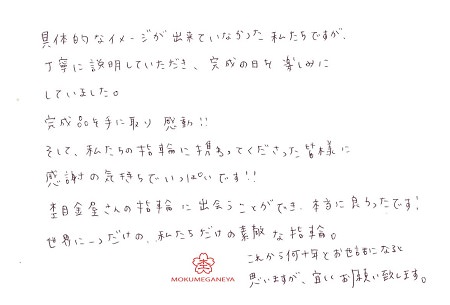 具体的なイメージが出来ていなかった私たちですが、
丁寧に説明していただき、完成の日を楽しみに
していました。
完成品を手に取り感動!!
そして、私たちの指輪に携わってくださった皆様に
感謝の気持ちでいっぱいです!!
杢目金屋さんの指輪に出会うことができ、本当に良かったです!
世界に一つだけの、私たちだけの素敵な指輪。
これから何十年とお世話になると
思いますが、宜しくお願い致します。
MOKUMEGANEYA